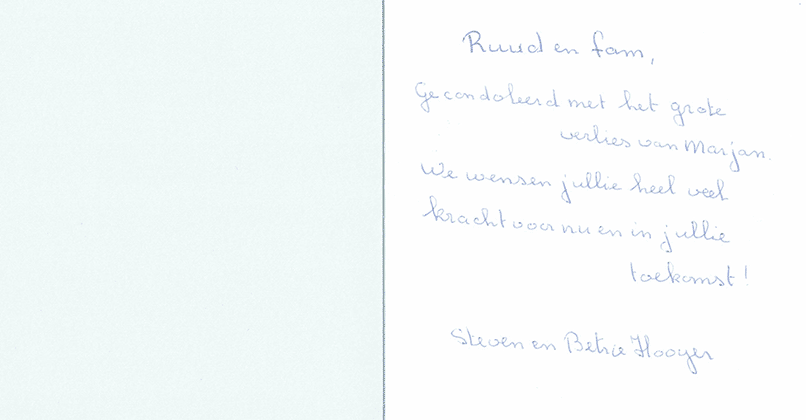 Ruud en fam,
Gecondoleerd met het grote
verlies van Marjan.
We wensen jullie heel veel
kracht voor nu en in jullie
toekomst!
Steven en Betsie Hooyer